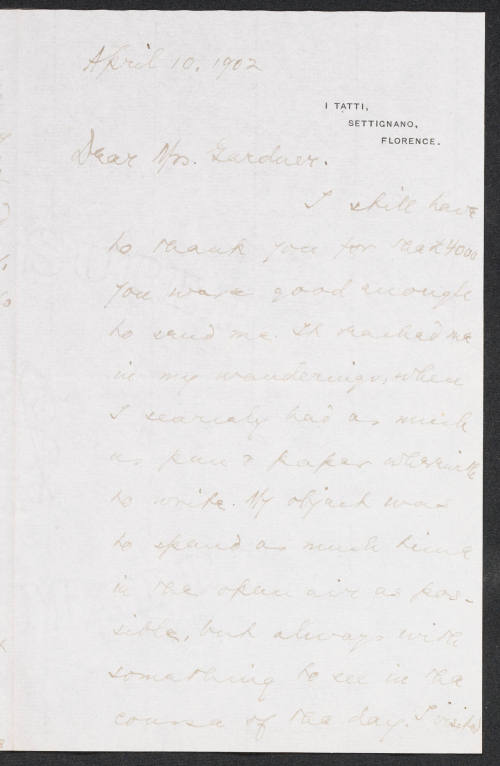 April 10, 1902
I TATTI,
SETTIGNANO,
FLORENCE.
Dear Mrs. Gardner.
I still have
to thank you for that 4000
you were good enough
to send me. It reached me
in my wanderings, when
I scarcely had as much
as pen & paper wherewith
to write. My object was
to spend as much time
in the open air as pos-
sible, but always with
something to see in the
course of the day. I visited